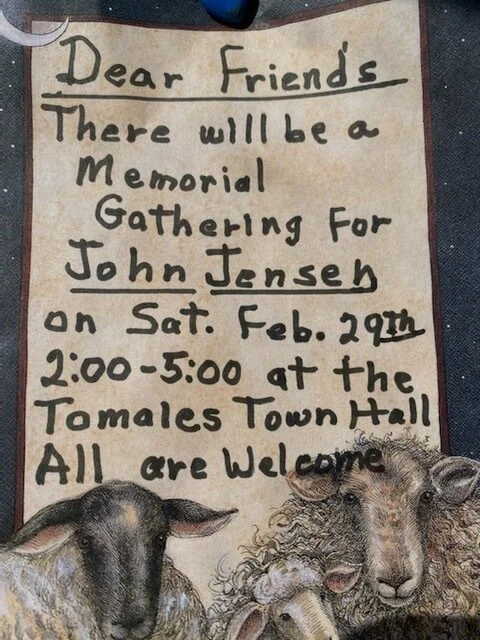 Dear Friends
There will be a
Memorial
Gathering For
John Jensen
on Sat. Feb. 29th
2:00-5:00 at the
Tomales Town Hall
All are Welcome